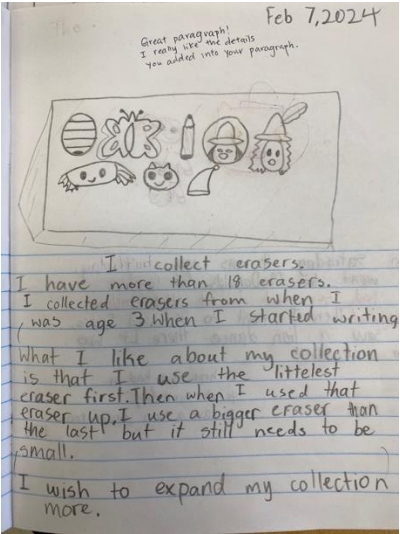 Feb 7,2024
Great paragraph!
I really like the details
you added into your paragraph.
I collect erasers.
I have more than 18 erasers.
I collected erasers from when I
was age 3.When I started writing
What I like about my collection
is that I use the littelest
eraser first.Then when I used that
eraser up,I use a bigger eraser than
the last but it still needs to be
small.
I wish to expand my collection
more.